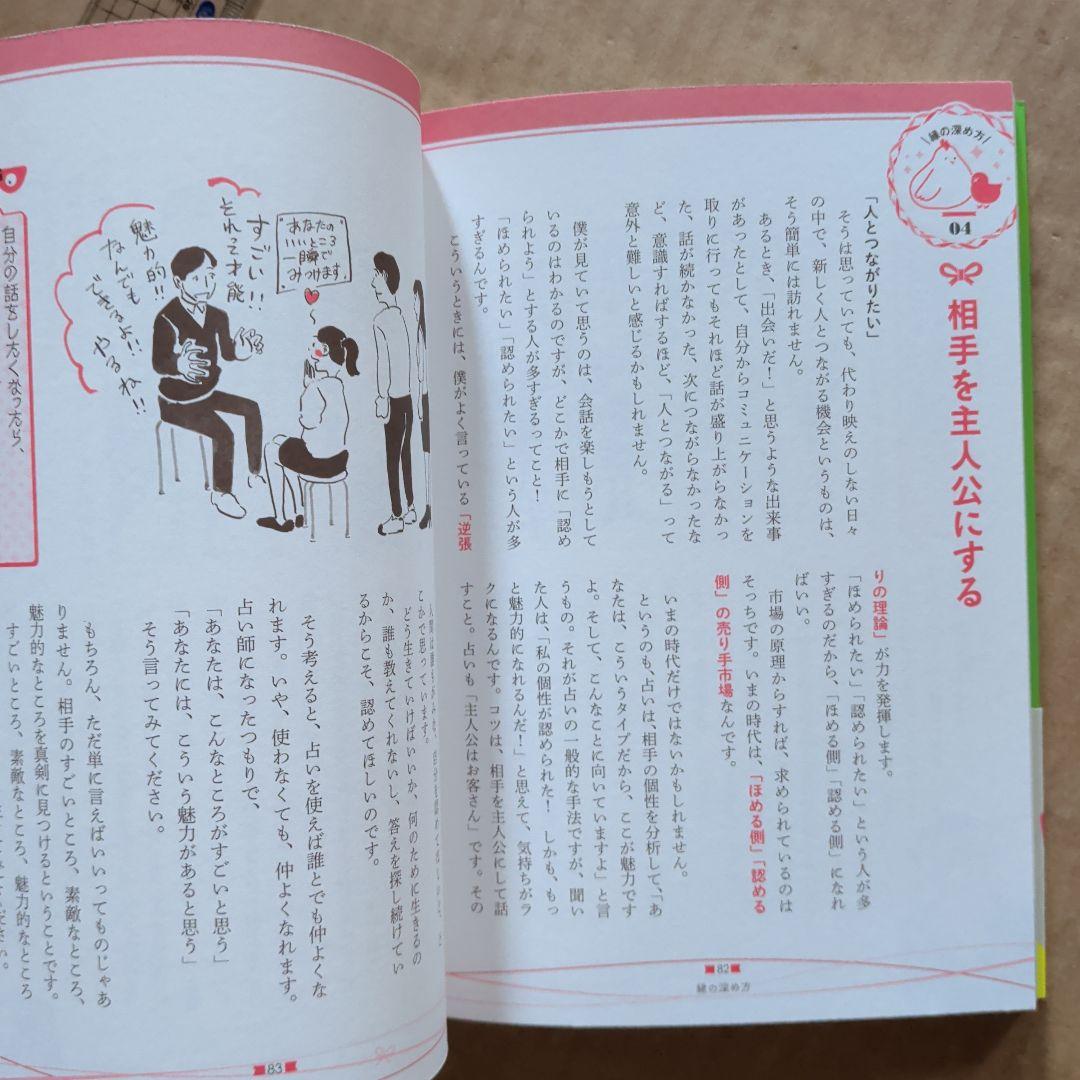 縁の深め方
04
相手を主人公にする
「人とつながりたい」
そうは思っていても、代わり映えのしない日々
の中で、新しく人とつながる機会というものは、
そう簡単には訪れません。
あるとき、「出会いだ！」と思うような出来事
があったとして、自分からコミュニケーションを
取りに行ってもそれほど話が盛り上がらなかっ
た、話が続かなかった、次につながらなかったな
ど、意識すればするほど、「人とつながる」って
意外と難しいと感じるかもしれません。
僕が見ていて思うのは、会話を楽しもうとして
いるのはわかるのですが、どこかで相手に「認め
られよう」とする人が多すぎるってこと！
「ほめられたい」「認められたい」という人が多
すぎるんです。
こういうときには、僕がよく言っている「逆張
りの理論」が力を発揮します。
「ほめられたい」「認められたい」という人が多
すぎるのだから、「ほめる側」「認める側」になれ
ばいい。
市場の原理からすれば、求められているのは
そっちです。いまの時代は、「ほめる側」「認める
側」の売り手市場なんです。
いまの時代だけではないかもしれません。
というのも、占いは、相手の個性を分析して、「あ
なたは、こういうタイプだから、ここが魅力です
よ。そして、こんなことに向いていますよ」と言
うもの。それが占いの一般的な手法ですが、聞い
た人は、「私の個性が認められた！しかも、もっ
と魅力的になれるんだ！」と思えて、気持ちがラ
クになるんです。コツは、相手を主人公にして話
すこと。占いも「主人公はお客さん」です。その
82
縁の深め方
あなたの
いいところ
一瞬で
みつけます。
すごい!!
それって才能
魅力的!!
なんでも
できるよ!!
やるね!!
自分の話をしたくなったら、
こかで思っています。
どう生きていけばいいか、何のために生きるの
か、誰も教えてくれないし、答えを探し続けてい
るからこそ、認めてほしいのです。
そう考えると、占いを使えば誰とでも仲よくな
れます。いや、使わなくても、仲よくなれます。
占い師になったつもりで、
「あなたは、こんなところがすごいと思う」
「あなたには、こういう魅力があると思う」
そう言ってみてください。
もちろん、ただ単に言えばいいってものじゃあ
りません。相手のすごいところ、素敵なところ、
魅力的なところを真剣に見つけるということです。
すごいところ、素敵なところ、魅力的なところ
83